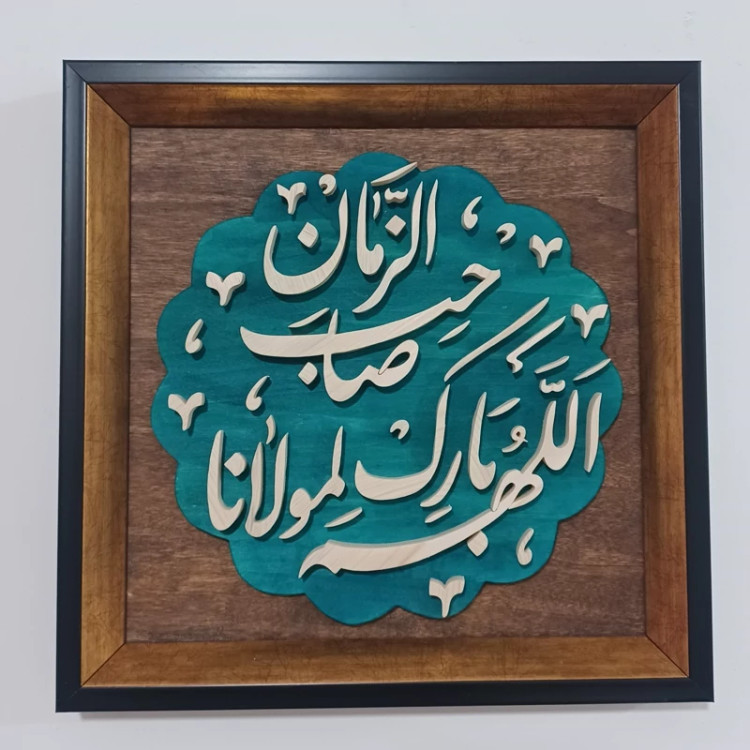 اَللّهُمَّ بارِك لِمولانا
صاحِبَ
الزَّمان